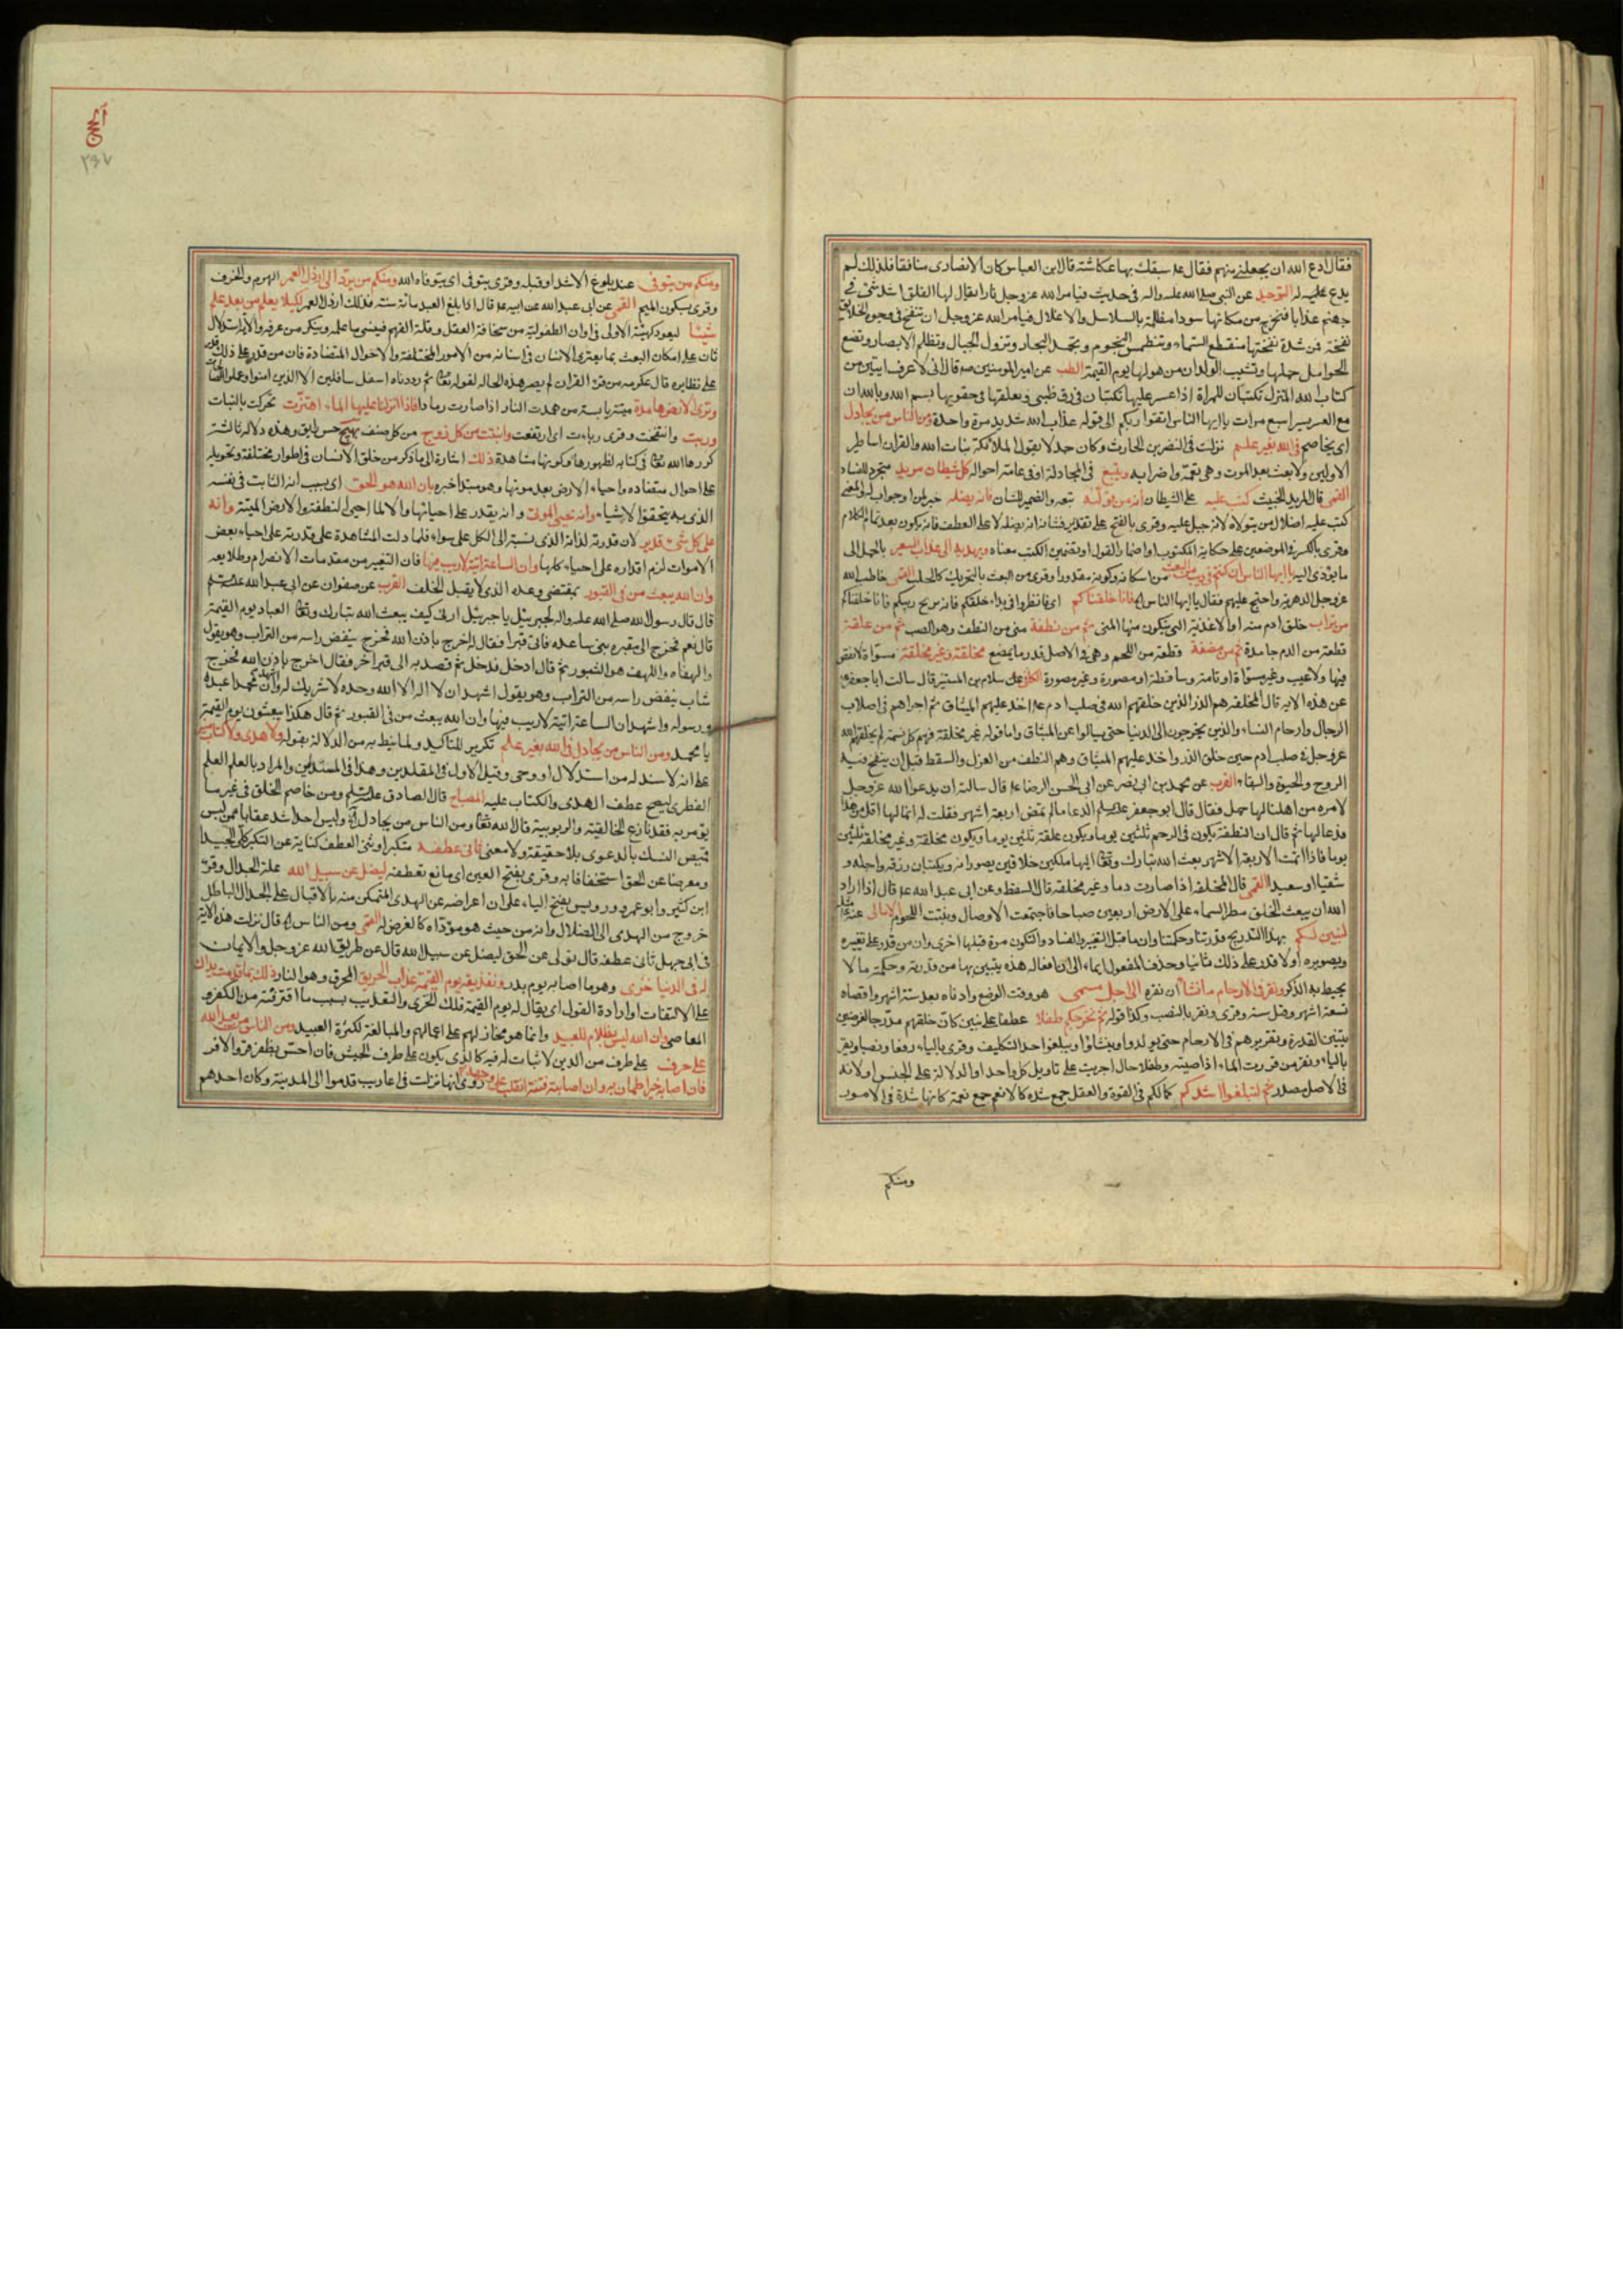 فقال ادع الله ان يجعلنى منهم فقال عم سبقك بها عكاشة قال ابن العباس وكان الانصارى منافقا فلذلك لم
يدع عليه له التوحيد عن النبى صلى الله عليه واله فى حديث فيامر الله عز وجل نارا يقال لها الفلق اشد شئ فى
جهنم عذابا فتخرج من مكانها سوداء مظلمة بالسلاسل والاغلال فيامر الله عز وجل ان تنفخ فى وجوه الخلايق
نفخة فمن شدة نفختها تنقطع السماء وتنطمس النجوم وتجمد البحار وتزول الجبال وتظلم الابصار وتضع
الحوامل حملها وتشيب الولدان من هولها يوم القيمة الطب عن امير المومنين عم قال انى لاعرف ايتين من
كتاب الله المنزل تكتبان للمراة اذا عسر عليها تكتبان فى رق ظبى ويعلقها فى حقويها بسم الله وبالله ان
مع العسر يسرا سبع مرات يا ايها الناس اتقوا ربكم الى قوله عذاب الله شديد مرة واحدة ومن الناس من يجادل
اى يخاصم فى الله بغير علم نزلت فى النضر بن الحارث وكان جدلا يقول الملائكة بنات الله والقران اساطير
الاولين ولا بعث بعد الموت وهى تعمه واضرابه ويتبع فى المجادلة او فى عامة احواله كل شيطان مريد متجرد للفساد
القمى قال المريد الخبيث كتب عليه على الشيطان انه من تولاه تبعه والضمير للشان فانه يضله خبر لمن او جواب له والمعنى
كتب عليه اضلال من يتولاه لانه جبل عليه وقرى بالفتح على تقدير فشانه انه يضله لا على العطف فانه يكون بعد تمام الكلام
وقرى بالكسر فى الموضعين على حكاية المكتوب او اضمار القول او تضمين الكتب معناه ويهديه الى عذاب السعير بالحمل الى
ما يؤدى اليه يا ايها الناس ان كنتم فى ريب من البعث من امكانه وكونه مقدورا وقرى من البعث بالتحريك كالجلب القمى خاطب الله
عز وجل الدهرية واحتج عليهم فقال يا ايها الناس اه فانا خلقناكم اى فانظروا فى بدء خلقكم فانه يزيح ريبكم فانا خلقناكم
من تراب خلق ادم منه او الاغذية التى يتكون منها المنى ثم من نطفة منى من النطف وهو الصب ثم من علقة
قطعة من الدم جامدة ثم من مضغة قطعة من اللحم وهى فى الاصل قدر ما يمضغ مخلقة وغير مخلقة مسواة لا نقص
فيها ولا عيب وغير مسواة او تامة وساقطة او مصورة وغير مصورة الكافى عن سلام بن المستنير قال سالت ابا جعفر ع
عن هذه الاية قال المخلقة هم الذر الذين خلقهم الله فى صلب ادم عم اخذ عليهم الميثاق ثم اجراهم فى اصلاب
الرجال وارحام النساء والذين يخرجون الى الدنيا حتى يسالوا عن الميثاق واما قوله غير مخلقة فهم كل نسمة لم يخلقهم الله
عز وجل فى صلب ادم حين خلق الذر واخذ عليهم الميثاق وهم النطف من العزل والسقط قبل ان ينفخ فيه
الروح والحيوة والبقاء القرب عن محمد بن ابى نصر عن ابى الحسن الرضا عم قال سالته ان يدعوا الله عز وجل
لامرة من اهلنا لها حمل فقال قال ابو جعفر عليه السلم الدعا ما لم تمض اربعة اشهر فقلت له انما لها اقل من هذا
فدعا لها ثم قال ان النطفة يكون فى الرحم ثلثين يوما ويكون علقة ثلثين يوما ويكون مخلقة وغير مخلقة ثلثين
يوما فاذا تمت الاربعة الاشهر بعث الله تبارك وتعالى اليها ملكين خلاقين يصورانه ويكتبان رزقه واجله و
شقيا او سعيدا القمى قال المخلقة اذا صارت دما وغير مخلقة قال السقط وعن ابى عبد الله عم قال اذا اراد
الله ان يبعث الخلق مطر السماء على الارض اربعين صباحا فاجتمعت الاوصال ونبتت اللحوم الامالى عنه ع مثله
لنبين لكم بهذا التدريج قدرتنا وحكمتنا وان ما قبل التغير والفساد والتكون مرة قبلها اخرى وان من قدر على تغييره
وتصويره اولا قدر على ذلك ثانيا وحذف المفعول ايماء الى ان افعاله هذه يتبين بها من قدرته وحكمته ما لا
يحيط به الذكر ونقر فى الارحام ما نشاء ان نقره الى اجل مسمى هو وقت الوضع وادناه بعد ستة اشهر واقصاه
تسعة اشهر وقيل سنة وقرى ونقر بالنصب وكذا قوله ثم نخرجكم طفلا عطفا على نبين كان خلقهم مدرجا لغرضين
تبيين القدرة وتقريرهم فى الارحام حتى يولدوا وينشاؤا ويبلغوا حد التكليف وقرى بالياء رفعا ونصبا ويقر
بالياء ونقر من قررت الماء اذا صببته وطفلا حال اجريت على تاويل كل واحد او الدلالة على الجنس او لانه
فى الاصل مصدر ثم لتبلغوا اشدكم كمالكم فى القوة والعقل جمع شدة كالانعم جمع نعمة كانها شدة فى الامور
ومنكم
الحج
٢٤٧
ومنكم من يتوفى عند بلوغ الاشد او قبله وقرى يتوفى اى يتوفاه الله ومنكم من يرد الى ارذل العمر الهرم والخرف
وقرى بسكون الميم القمى عن ابى عبد الله عن ابيه عم قال اذا بلغ العبد مائة سنة فذلك ارذل العمر لكيلا يعلم من بعد علم
شيئا ليعود كهيئته الاولى فى اوان الطفولية من سخافة العقل وقلة الفهم فينسى ما علمه وينكر من عرفه والاية استدلال
ثان على امكان البعث بما يعترى الانسان فى اسنانه من الامور المختلفة والاحوال المتضادة فان من قدر على ذلك قدر
على نظايره قال عكرمه من قرء القران لم يصر هذه الحالة لقوله تعالى ثم رددناه اسفل سافلين الا الذين امنوا وعملوا الصالحات
وترى الارض هامدة ميتة يابسة من همدت النار اذا صارت رمادا فاذا انزلنا عليها الماء اهتزت تحركت بالنبات
وربت وانتفخت وقرى رباءت اى ارتفعت وانبتت من كل زوج من كل صنف بهيج حسن رايق وهذه دلالة ثالثة
كررها الله تعالى فى كتابه لظهورها وكونها مشاهدة ذلك اشارة الى ما ذكر من خلق الانسان فى اطوار مختلفة وتحويله
على احوال متضاده واحياء الارض بعد موتها وهو مبتدا خبره بان الله هو الحق اى بسبب انه الثابت فى نفسه
الذى به يتحقق الاشياء وانه يحيى الموتى وانه يقدر على احيائها والا لما احيى النطفة والارض الميتة وانه
على كل شئ قدير لان قدرته لذاته الذى نسبته الى الكل على سواء فلما دلت المشاهدة على قدرته على احياء بعض
الاموات لزم اقتداره على احياء كلها وان الساعة اتية لا ريب فيها فان التغير من مقدمات الانصرام وطلايعه
وان الله يبعث من فى القبور بمقتضى وعده الذى لا يقبل الخلف القرب عن صفوان عن ابى عبد الله عليه السلم
قال قال رسول الله صلى الله عليه واله لجبرئيل يا جبرئيل ارنى كيف يبعث الله تبارك وتعالى العباد يوم القيمة
قال نعم فخرج الى مقبرة بنى ساعده فاتى قبرا فقال له اخرج باذن الله فخرج ينفض راسه من التراب وهو يقول
والهفاه واللهف هو الثبور ثم قال ادخل فدخل ثم قصد به الى قبر اخر فقال اخرج باذن الله فخرج
شاب ينفض راسه من التراب وهو يقول اشهد ان لا اله الا الله وحده لا شريك له واشهد ان محمدا عبده
ورسوله واشهد ان الساعة اتية لا ريب فيها وان الله يبعث من فى القبور ثم قال هكذا يبعثون يوم القيمة
يا محمد ومن الناس من يجادل فى الله بغير علم تكرير للتاكيد ولما نيط به من الدلالة بقوله ولا هدى ولا كتاب منير
على انه لا سند له من استدلال او وحى وقيل الاول فى المقلدين وهذا فى المستدلين والمراد بالعلم العلم
الفطرى ليصح عطف الهدى والكتاب عليه المصباح قال الصادق عليه السلم ومن خاصم الخلق فى غير ما
يؤمر به فقد نازع الخالقية والربوبية قال الله تعالى ومن الناس من يجادل اه وليس احد اشد عقابا ممن لبس
قميص النسك بالدعوى بلا حقيقة ولا معنى ثانى عطفه متكبرا وثنى العطف كناية عن التكبر كلى الجيد
ومعرضا عن الحق استخفافا به وقرى بفتح العين اى مانع تعطفه ليضل عن سبيل الله علة الجدال وقرء
ابن كثير وابو عمرو ورويس بفتح الياء على ان اعراضه عن الهدى المتمكن منه بالاقبال على الجدال الباطل
خروج من الهدى الى الضلال وانه من حيث هو مؤداه كالغرض له القمى ومن الناس اه قال نزلت هذه الاية
فى ابى جهل ثانى عطفه قال تولى عن الحق ليضل عن سبيل الله قال عن طريق الله عز وجل والايمان
له فى الدنيا خزى وهو ما اصابه يوم بدر ونذيقه يوم القيمة عذاب الحريق المحرق وهو النار ذلك بما قدمت يداك
على الالتفات او ارادة القول اى يقال له يوم القيمة ذلك الخزى والتعذيب بسبب ما اقترفته من الكفر و
المعاصى وان الله ليس بظلام للعبيد وانما هو مجاز لهم على اعمالهم والمبالغة لكثرة العبيد ومن الناس من يعبد الله
على حرف على طرف من الدين لا ثبات له فيه كالذى يكون على طرف الجيش فان احس بظفر قر والا فر
فان اصابه خير اطمان به وان اصابته فتنة انقلب على وجهه روى انها نزلت فى اعاريب قدموا الى المدينة وكان احدهم